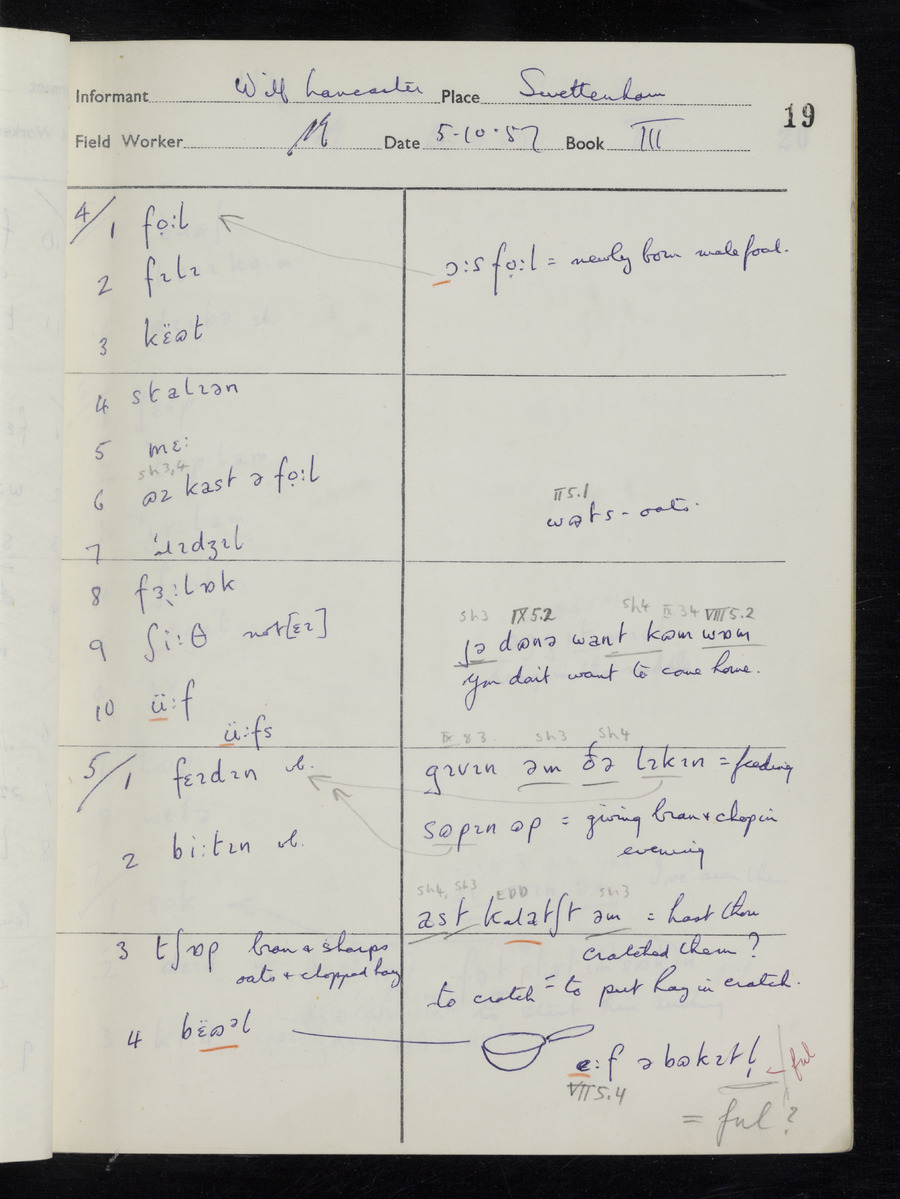 Informant Wilf Lancaster Place Swettenham
19
Field Worker Date 5-10-57 Book III
4/1 fọ:l
ɔ:s fọ:l = newly born male foal.
2 fɪlɪ
3 këɷt
4 stalɪən
5 mɛ:
sh3,4
6 ɷɪ kast ə fọ:l
II 5.1
wɷts - oats.
7 'ɹɪdʒɪl
8 fɜ:lɒk
sh3 IX 5.2 sh4 IX 34 VIII 5.2
9 ʃi:θ not [ɛɪ]
ʃə dɷnə want kɷm wɒm
You don't want to come home.
10 ü:f
ü:fs
IX 8 3. sh3 sh4
5/1 fɛɪdɪn vb.
gɪvɪn əm ðə lɪkɪn = feeding
sɷpɪn ɷp = giving bran & chop in
evening
2 bi:tɪn vb.
sh4, sh3 EDD sh3
ast kɹatʃt əm = hast thou
cratched them?
3 tʃɒp bran & sharps
oats & chopped hay
to cratch = to put hay in cratch.
4 bëɷᵊl
e:f ə bɷkɪt!
ful
VII 5.4
= ful?